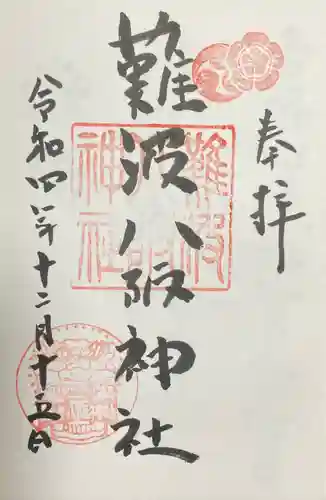 奉拝
難波八阪神社
令和四年十二月十五日
難波
八阪
神社